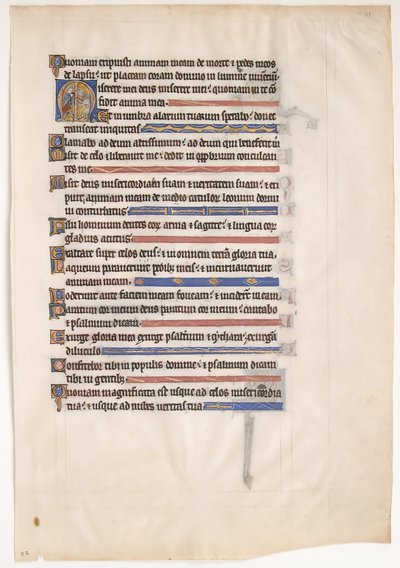 Quoniam eripuisti animam meam de morte ⁊ pedes meos
de lapsu : ut placeam coram domino in lumine viventium.
Miserere mei deus miserere mei : quoniam in te con
fidit anima mea.
Et in umbra alarum tuarum sperabo : donec
transeat iniquitas.
Clamabo ad deum altissimum : ad deum qui benefecit m
Misit de celo ⁊ liberavit me : dedit in opprobrium conculcan
tes me.
Misit deus misericordiam suam ⁊ veritatem suam : ⁊ eri
puit animam meam de medio catulorum leonum dormi
vi conturbatus.
Filii hominum dentes eorum arma ⁊ sagitte : ⁊ lingua eor
gladius acutus.
Exaltare super celos deus : ⁊ in omnem terram gloria tua.
Laqueum paraverunt pedibus meis : ⁊ incurvaverunt
animam meam.
Foderunt ante faciem meam foveam : ⁊ inciderunt in eam.
Paratum cor meum deus paratum cor meum : cantabo
⁊ psalmum dicam.
Exurge gloria mea exurge psalterium ⁊ cythara : exurgam
diluculo.
Confitebor tibi in populis domine : ⁊ psalmum dicam
tibi in gentibus.
Quoniam magnificata est usque ad celos misericordia
tua : ⁊ usque ad nubes veritas tua.
32